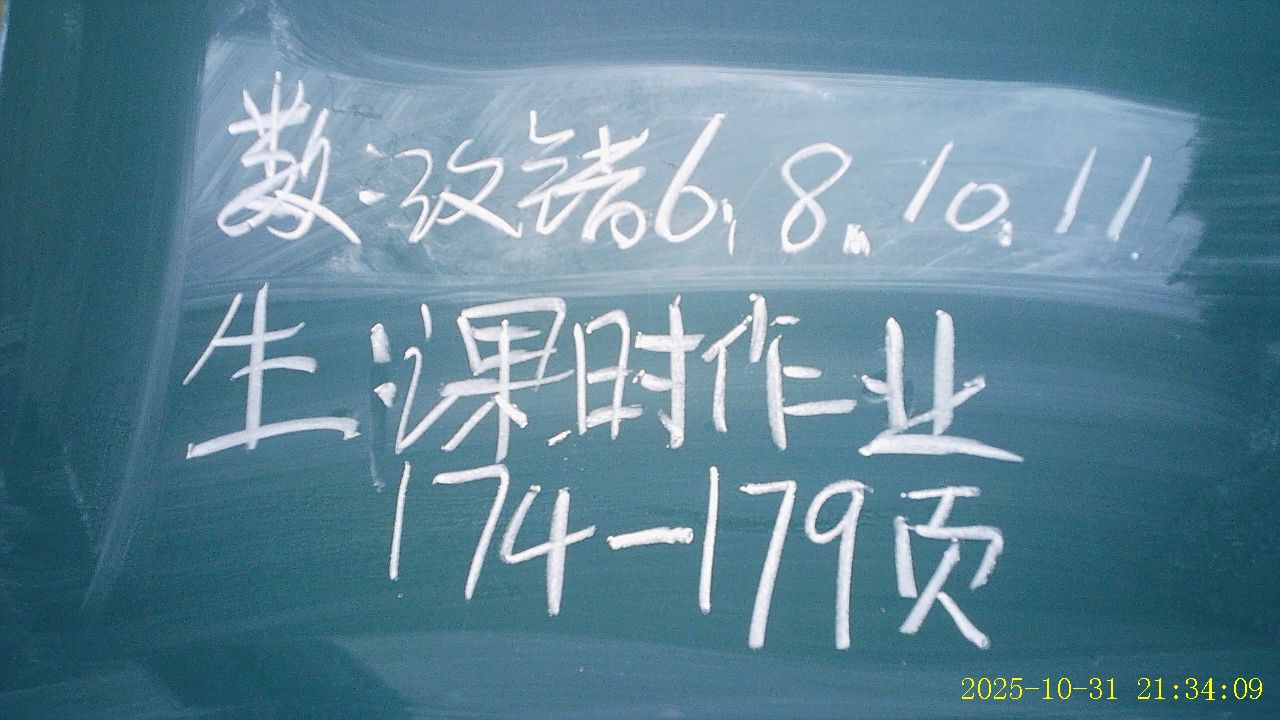 数:改错6,8,10,11.
生:课时作业
174-179页
2025-10-31 21:34:09